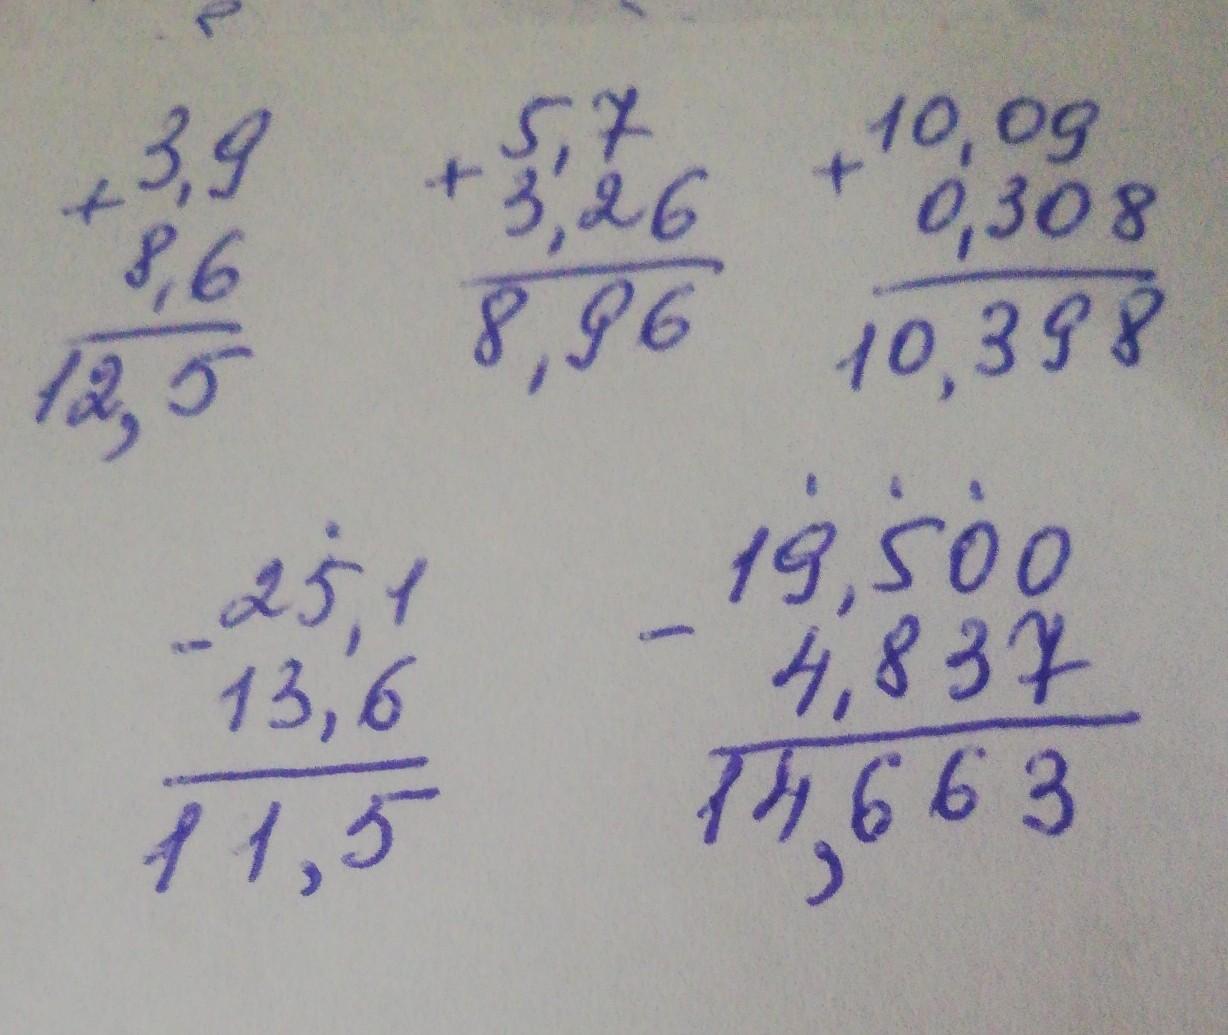 3,9
+
8,6
12,5
5,7
+
3,26
8,96
10,09
+
0,308
10,398
25,1
-
13,6
11,5
19,500
-
4,837
14,663